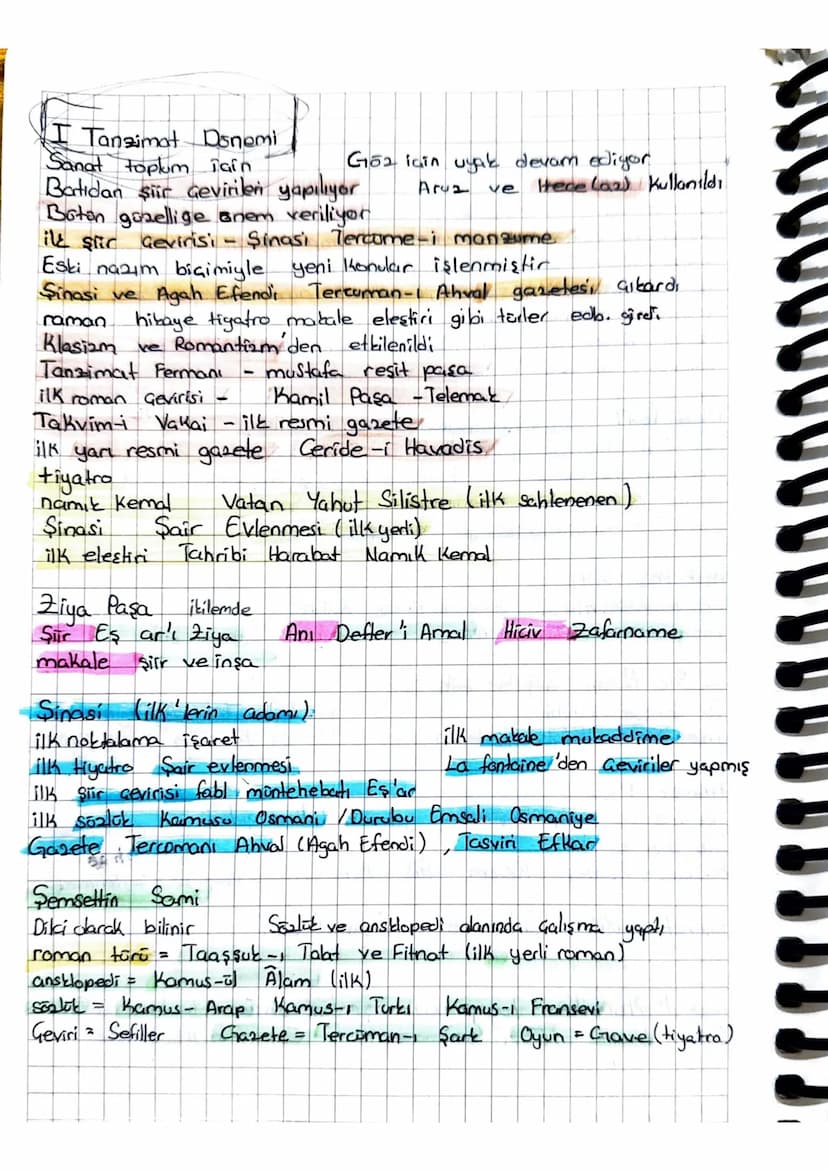 I Tanzimat Dönemi
Sanat toplum için Göz için uyak devam ediyor
Batıdan şiir çevirileri yapılıyor Aruz ve Hece (az) kullanıldı
Bütün güzelliğe önem veriliyor
ilk şiir çevirisi - Şinasi Tercüme-i manzume
Eski nazım biçimiyle yeni konular işlenmiştir
Şinasi ve Agah Efendi Tercüman-ı Ahval gazetesi çıkardı
roman hikaye tiyatro makale eleştiri gibi türler edb. girdi
Klasizm ve Romantizm'den etkilenildi
Tanzimat Fermanı - mustafa reşit paşa
ilk roman çevirisi - Kamil Paşa - Telemak
Takvim-i Vakai - ilk resmi gazete
ilk yarı resmi gazete Ceride-i Havadis
tiyatro
namık Kemal Vatan Yahut Silistre (ilk sahlenenen)
Şinasi Şair Evlenmesi (ilk yerli)
ilk eleştiri Tahribi Harabat Namık Kemal
Ziya Paşa ikilemde
Şiir Eş ar'ı Ziya Anı Defter'i Amal Hiciv Zafarname
makale şiir ve inşa
Şinasi (ilk'lerin adamı)
ilk noktalama işaret ilk makale mukaddime
ilk tiyatro Şair evlenmesi La fontaine'den çeviriler yapmış
ilk şiir çevirisi fabl müntehebatı Eş'ar
ilk sözlük Kamusu Osmani / Durubu Emsali Osmaniye
Gazete Tercümanı Ahval (Agah Efendi), Tasviri Efkar
Şemsettin Sami
Dilci olarak bilinir Sözlük ve ansklopedi alanında çalışma yaptı
roman türü = Taaşşuk-ı Talat ve Fitnat (ilk yerli roman)
ansklopedi = Kamus-ül Âlam (ilk)
sözlük = Kamus-Arapi Kamus-ı Türkı Kamus-ı Fransevi
Çeviri = Sefiller Gazete = Tercüman-ı Şark Oyun = Gave (tiyatro)